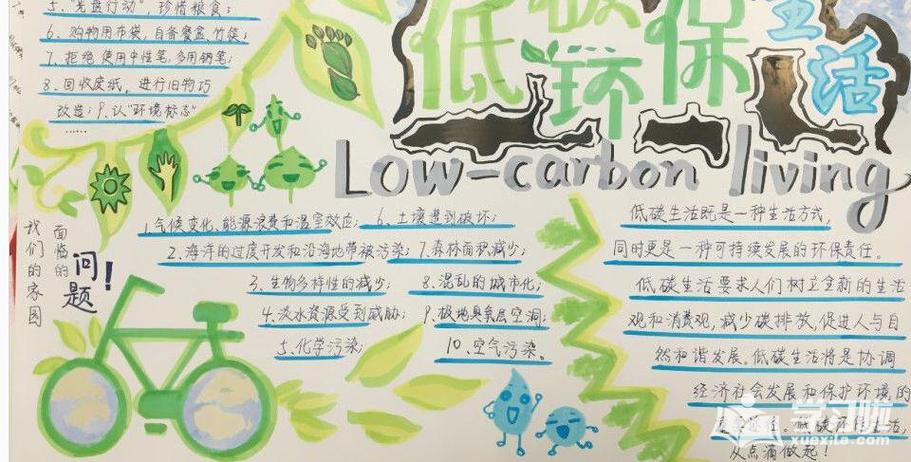 5、"光盘行动"，珍惜粮食；
6、购物用布袋，自备餐盒、竹筷；
7、拒绝使用中性笔，多用钢笔；
8、回收废纸，进行旧物巧
改造；9、认"环境标志"
……
低碳
环保
生活
Low-carbon living
我们的家园
面临的
问题！
1.气候变化、能源浪费和温室效应；
2.海洋的过度开发和沿海地带被污染；
3、生物多样性的减少；
4.淡水资源受到威胁；
5、化学污染；
6、土壤遭到破坏；
7.森林面积减少；
8.混乱的城市化；
9、极地臭氧层空洞；
10、空气污染。
低碳生活既是一种生活方式，
同时更是一种可持续发展的环保责任。
低碳生活要求人们树立全新的生活
观和消费观，减少碳排放，促进人与自
然和谐发展。低碳生活将是协调
经济社会发展和保护环境的
低碳环保生活，
从点滴做起！
学习啦
xuexila.com